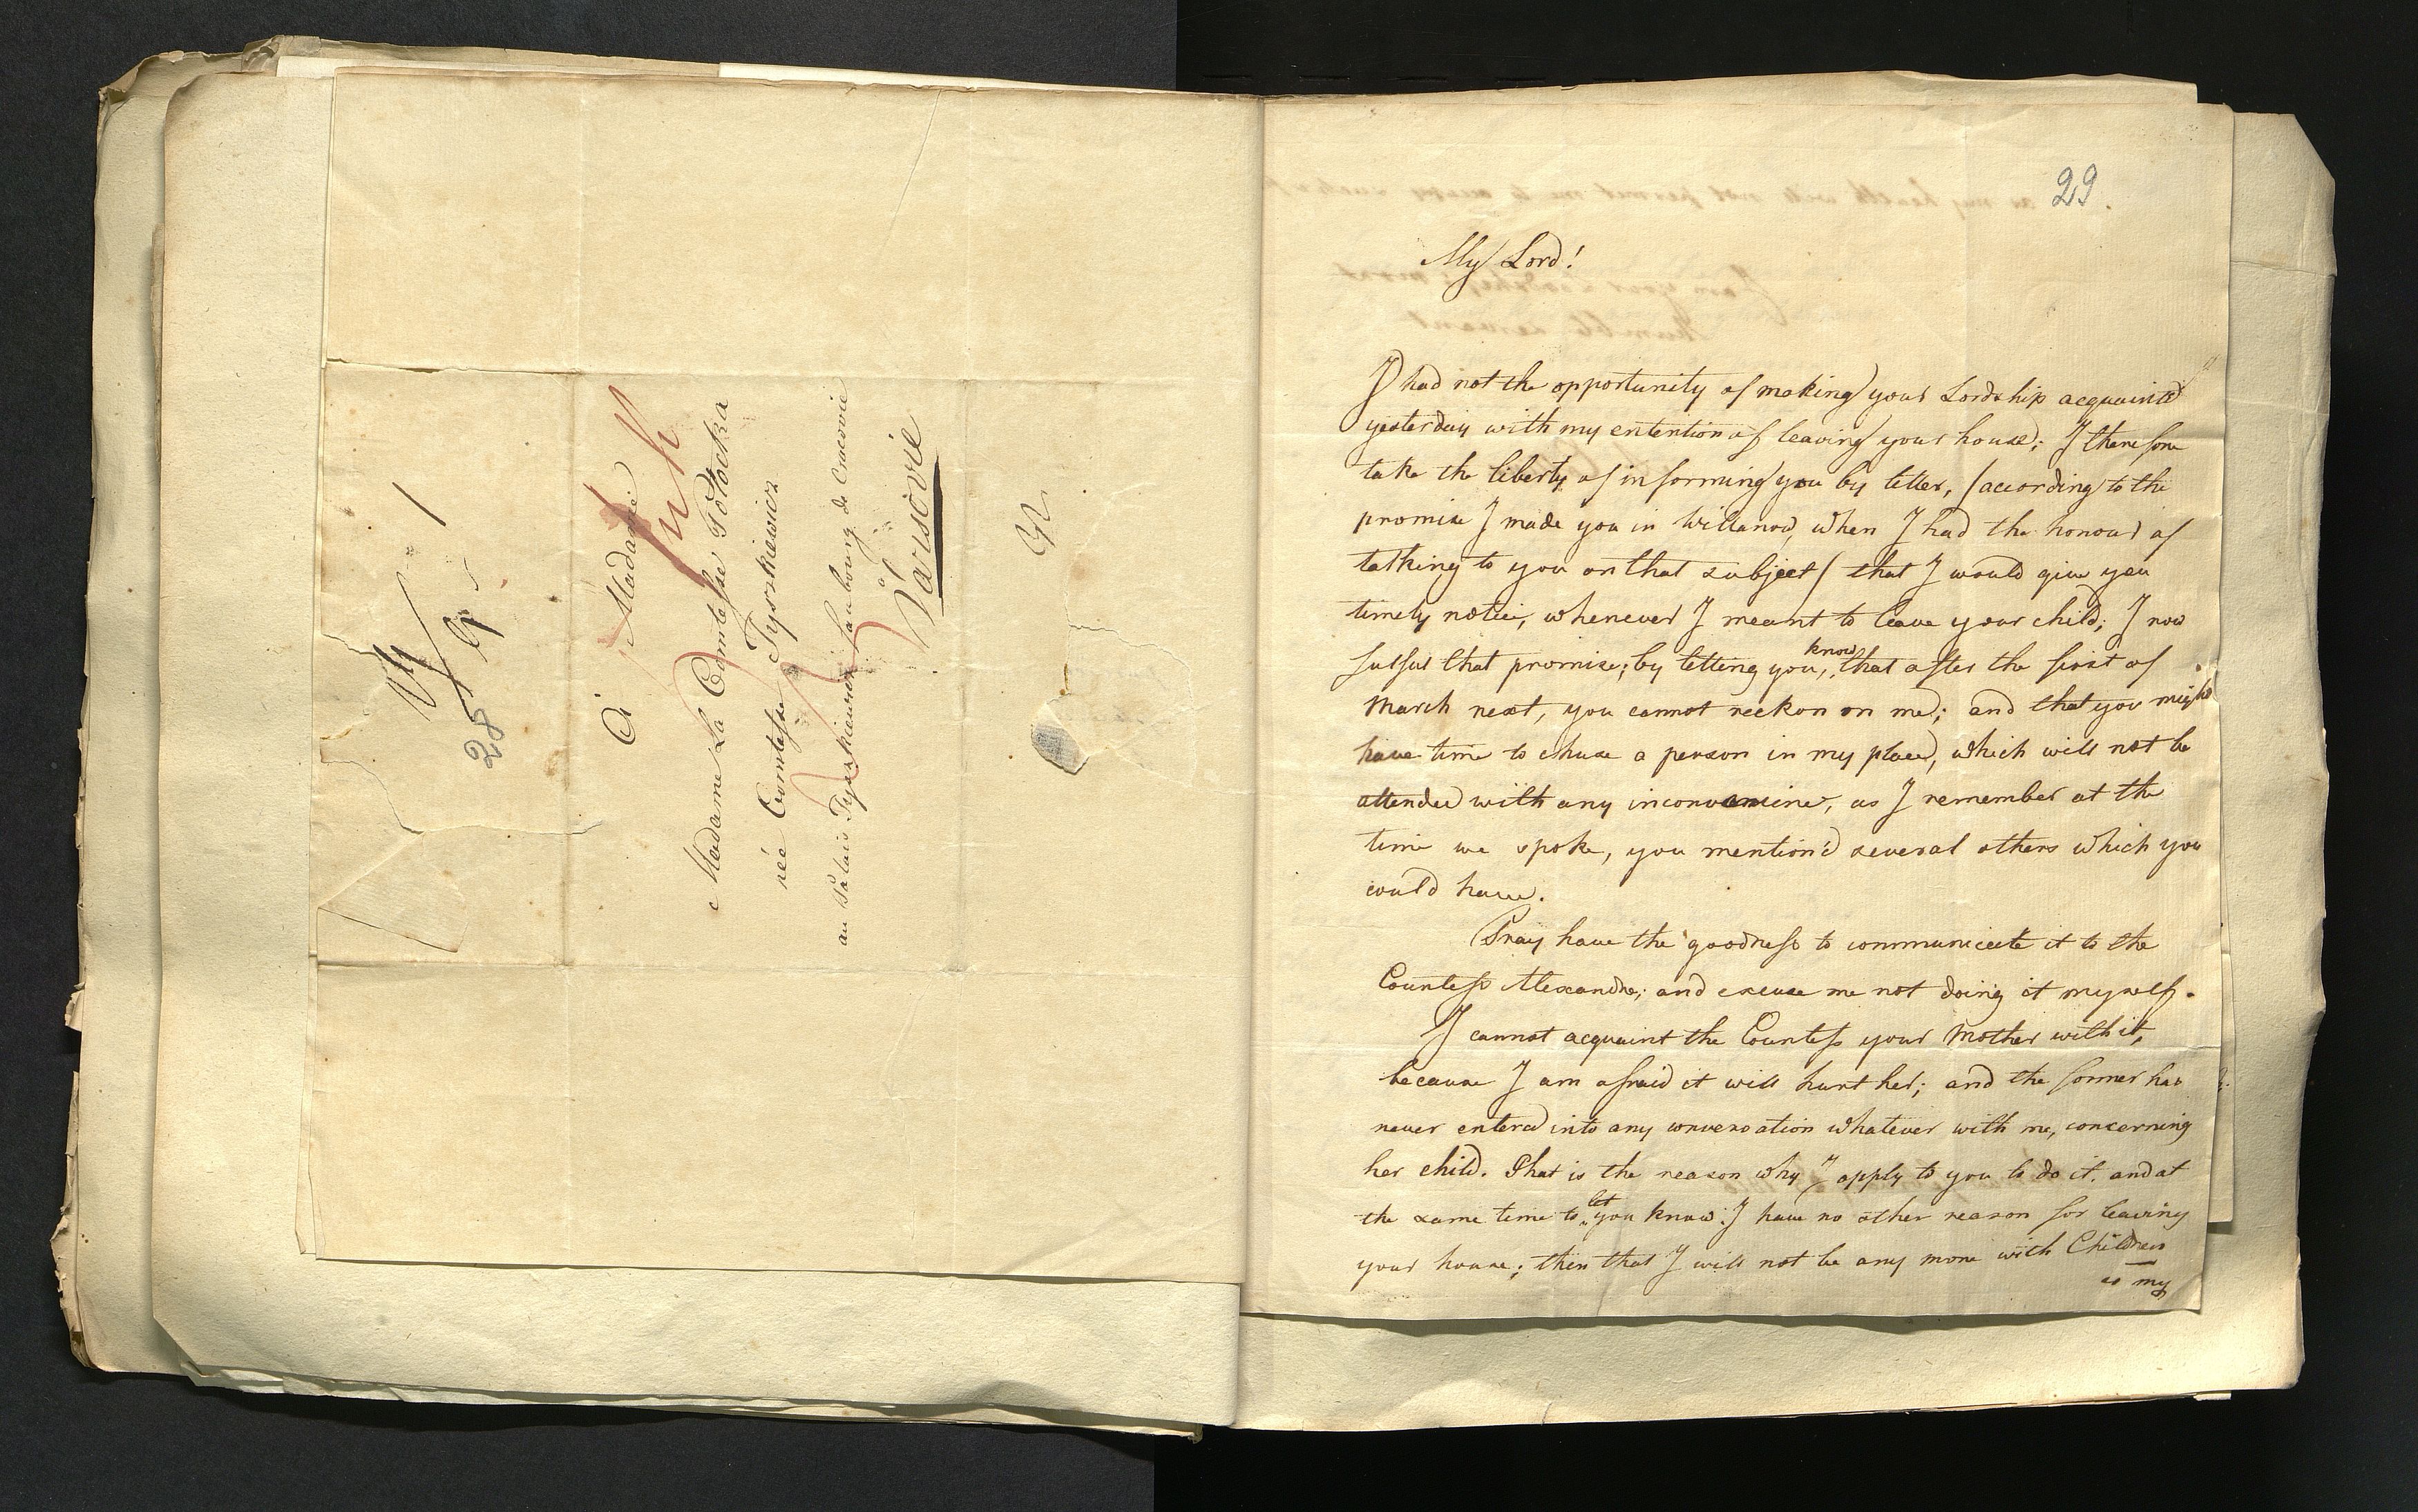 28
à Madame
Madame La Comtesse Potocka
née Comtesse Tyszkiewicz
au Palais Tyszkiewicz Faubourg de Cracovie
à
Varsovie
29
My Lord!
I had not the opportunity of making your Lordship acquainted
yesterday with my entention of leaving your house; I therefore
take the liberty of informing you by letter, (according to the
promise I made you in Willanow, when I had the honour of
talking to you on that subject) that I would give you
timely notice, whenever I meant to leave your child; I now
fulful that promise; by letting you know, that after the first of
March next, you cannot reckon on me; and that you might
have time to chuse a person in my place, which will not be
attended with any inconvenience, as I remember at the
time we spoke, you mention'd several others which you
could have.
Pray have the goodness to communicate it to the
Countess Alexandre; and excuse me not doing it myself.
I cannot acquaint the Countess your Mother with it,
because I am afraid it will hurt her; and the former has
never entered into any conversation whatever with me, concerning
her child. That is the reason why I apply to you to do it. and at
the same time to let you know. I have no other reason for leaving
your house; then that I will not be any more with Children
as my